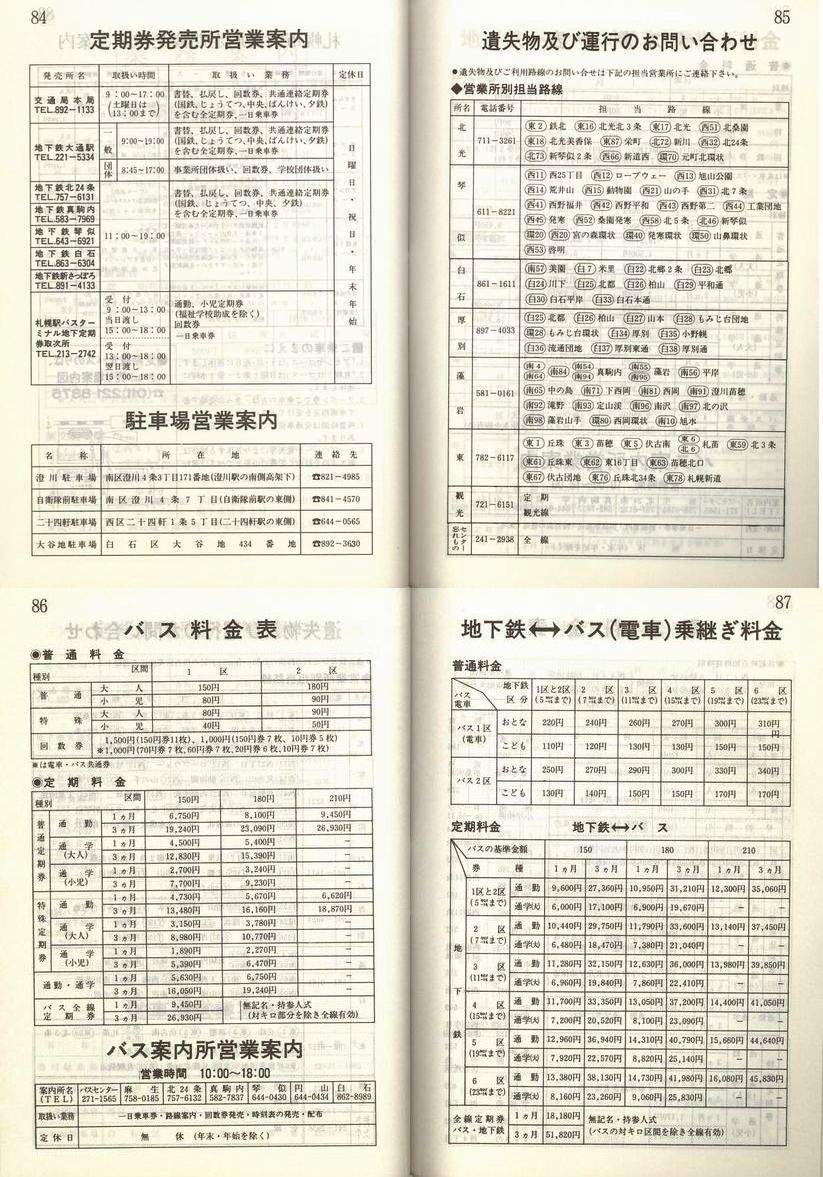 84
定期券発売所営業案内
発売所名 取扱い時間 取扱い業務 定休日
交通局本局
TEL.892-1133
9:00〜17:00
(土曜日は
13:00まで)
書替、払戻し、回数券、共通連絡定期券
(国鉄、じょうてつ、中央、ばんけい、夕鉄)
を含む全定期券、一日乗車券
地下鉄大通駅
TEL.221-5334
一般 9:00〜19:00
書替、払戻し、回数券、共通連絡定期券
(国鉄、じょうてつ、中央、ばんけい、夕鉄)
を含む全定期券、一日乗車券
団体 8:45〜17:00 事業所団体扱い、回数券、学校団体扱い
地下鉄北24条
TEL.757-6131
地下鉄真駒内
TEL.583-7969
地下鉄琴似
TEL.643-6921
地下鉄白石
TEL.863-6304
地下鉄新さっぽろ
TEL.891-4133
11:00〜19:00
書替、払戻し、回数券、共通連絡定期券
(国鉄、じょうてつ、中央、夕鉄)
を含む全定期券、一日乗車券
札幌駅バスター
ミナル地下定期
券取次所
TEL.213-2742
受付
9:00〜13:00
当日渡し
15:00〜18:00
受付
13:00〜18:00
翌日渡し
15:00〜18:00
通勤、小児定期券
(福祉学校助成を除く)
回数券
一日乗車券
日曜日・祝日・年末年始
駐車場営業案内
名称 所在地 連絡先
澄川駐車場 南区澄川4条3丁目171番地(澄川駅の南側高架下) ☎821-4985
自衛隊前駐車場 南区澄川4条7丁目(自衛隊前駅の東側) ☎841-4570
二十四軒駐車場 西区二十四軒1条5丁目(二十四軒駅の東側) ☎644-0565
大谷地駐車場 白石区大谷地434番地 ☎892-3630
85
遺失物及び運行のお問い合わせ
●遺失物及びご利用路線のお問い合せは下記の担当営業所にご連絡下さい。
◆営業所別担当路線
所名 電話番号 担当路線
北光 711-3261
東2 鉄北 東16 北光北3条 東17 北光 西51 北桑園
東18 北光美香保 東87 栄町 北72 新川 西32 北24条
北73 新琴似2条 西66 新道西 環70 元町北環状
琴似 611-8221
西11 西25丁目 西12 ロープウェー 西13 旭山公園
西14 荒井山 西15 動物園 西21 山の手 西31 北7条
西41 西野福井 西42 西野平和 西43 西野第二 西44 工業団地
西45 発寒 西52 桑園発寒 西58 北5条 北46 新琴似
環20 西20 宮の森環状 環40 発寒環状 環50 山鼻環状
西53 啓明
白石 861-1611
南57 美園 白7 米里 白22 北郷2条 白23 北郷
白24 川下 白25 北都 白26 柏山 白29 平和通
白30 白石平岸 白33 白石本通
厚別 897-4033
白25 北都 白26 柏山 白27 山本 白28 もみじ台団地
環28 もみじ台環状 白34 厚別 白35 小野幌
白36 流通団地 白37 厚別東通 白38 厚別通
藻岩 581-0161
南4 南64 南84 南54 南94 真駒内 南55 南95 藻岩 南56 平岸
南65 中の島 南71 下西岡 南81 西岡 南91 澄川苗穂
南92 滝野 南93 定山渓 南96 南沢 南97 北の沢
南98 藻岩山手 環80 西岡環状 南10 旭水
東 782-6117
東1 丘珠 東3 苗穂 東5 伏古南 東6 北6 札苗 東59 北3条
東61 丘珠東 東62 東16丁目 東63 苗穂北口
東67 伏古団地 東76 丘珠北34条 東78 札幌新道
観光 721-6151 定期
観光線
忘れものセンター 241-2938 全線
86
バス料金表
◉普通料金
種別 区間 1区 2区
普通 大人 150円 180円
小児 80円 90円
特殊 大人 80円 90円
小児 40円 50円
回数券 1,500円(150円券11枚)、1,000円(150円券7枚、10円券5枚)
※1,000円(70円券7枚、60円券7枚、20円券6枚、10円券7枚)
※は電車・バス共通券
◉定期料金
種別 区間 150円 180円 210円
普通定期券 通勤 1ヵ月 6,750円 8,100円 9,450円
3ヵ月 19,240円 23,090円 26,930円
通学(大人) 1ヵ月 4,500円 5,400円 −
3ヵ月 12,830円 15,390円 −
通学(小児) 1ヵ月 2,700円 3,240円 −
3ヵ月 7,700円 9,230円 −
特殊定期券 通勤 1ヵ月 4,730円 5,670円 6,620円
3ヵ月 13,480円 16,160円 18,870円
通学(大人) 1ヵ月 3,150円 3,780円 −
3ヵ月 8,980円 10,770円 −
通学(小児) 1ヵ月 1,890円 2,270円 −
3ヵ月 5,390円 6,470円 −
通勤・通学 1ヵ月 5,630円 6,750円 −
3ヵ月 16,050円 19,240円 −
バス全線定期券 1ヵ月 9,450円 無記名・持参人式
3ヵ月 26,930円 (対キロ部分を除き全線有効)
バス案内所営業案内
営業時間 10:00〜18:00
案内所名 バスセンター 麻生 北24条 真駒内 琴似 円山 白石
(TEL) 271-1565 758-0185 757-6132 582-7837 644-0430 644-0434 862-8989
取扱い業務 一日乗車券・路線案内・回数券発売・時刻表の発売・配布
定休日 無休(年末・年始を除く)
87
地下鉄↔バス(電車)乗継ぎ料金
普通料金
バス電車 地下鉄区分 1区と2区(5㎞まで) 2区(7㎞まで) 3区(11㎞まで) 4区(15㎞まで) 5区(19㎞まで) 6区(23㎞まで)
バス1区(電車) おとな 220円 240円 260円 270円 300円 310円
円
こども 110円 120円 130円 130円 150円 150円
バス2区 おとな 250円 270円 290円 300円 330円 340円
こども 130円 140円 150円 150円 170円 170円
定期料金 地下鉄↔バス
バスの基準金額 150 180 210
券種 1ヵ月 3ヵ月 1ヵ月 3ヵ月 1ヵ月 3ヵ月
地下鉄
1区と2区(5㎞まで) 通勤 9,600円 27,360円 10,950円 31,210円 12,300円 35,060円
通学(大) 6,000円 17,100円 6,900円 19,670円 − −
2区(7㎞まで) 通勤 10,440円 29,750円 11,790円 33,600円 13,140円 37,450円
通学(大) 6,480円 18,470円 7,380円 21,040円 − −
3区(11㎞まで) 通勤 11,280円 32,150円 12,630円 36,000円 13,980円 39,850円
通学(大) 6,960円 19,840円 7,860円 22,410円 − −
4区(15㎞まで) 通勤 11,700円 33,350円 13,050円 37,200円 14,400円 41,050円
通学(大) 7,200円 20,520円 8,100円 23,090円 − −
5区(19㎞まで) 通勤 12,960円 36,940円 14,310円 40,790円 15,660円 44,640円
通学(大) 7,920円 22,570円 8,820円 25,140円 − −
6区(23㎞まで) 通勤 13,380円 38,130円 14,730円 41,980円 16,080円 45,830円
通学(大) 8,160円 23,260円 9,060円 25,830円 − −
全線定期券 1ヵ月 18,180円 無記名・持参人式
バス・地下鉄 3ヵ月 51,820円 (バスの対キロ区間を除き全線有効)